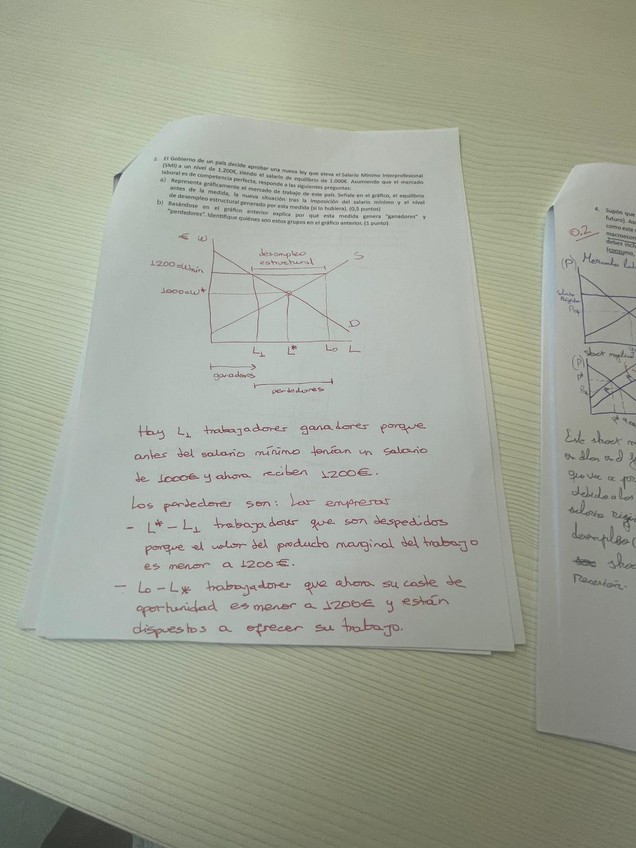 3. El Gobierno de un país decide aprobar una nueva ley que eleva el Salario Mínimo Interprofesional
(SMI) a un nivel de 1.200€, siendo el salario de equilibrio de 1.000€. Asumiendo que el mercado
laboral es de competencia perfecta, responde a las siguientes preguntas:
a) Represente gráficamente el mercado de trabajo de este país. Señale en el gráfico, el equilibrio
antes de la medida, la nueva situación tras la imposición del salario mínimo y el nivel
de desempleo estructural generado por esta medida (si lo hubiera). (0,5 puntos)
b) Basándose en el gráfico anterior explica por qué esta medida genera "ganadores" y
"perdedores". Identifique quiénes son estos grupos en el gráfico anterior. (1 punto)
€ W
desempleo
estructural
S
1200=Wmín
1000=W*
D
L1 L* L0 L
ganadores
perdedores
Hay L1 trabajadores ganadores porque
antes del salario mínimo tenían un salario
de 1000€ y ahora reciben 1200€.
Los perdedores son: Las empresas
- L* - L1 trabajadores que son despedidos
porque el valor del producto marginal del trabajo
es menor a 1200€.
- L0 - L* trabajadores que ahora su coste de
oportunidad es menor a 1200€ y están
dispuestos a ofrecer su trabajo.
4. Supón que
futuro). As
como este
macroecon
debes incl
(consumo,
0,2
(P) Mercado
(P)
Este shock